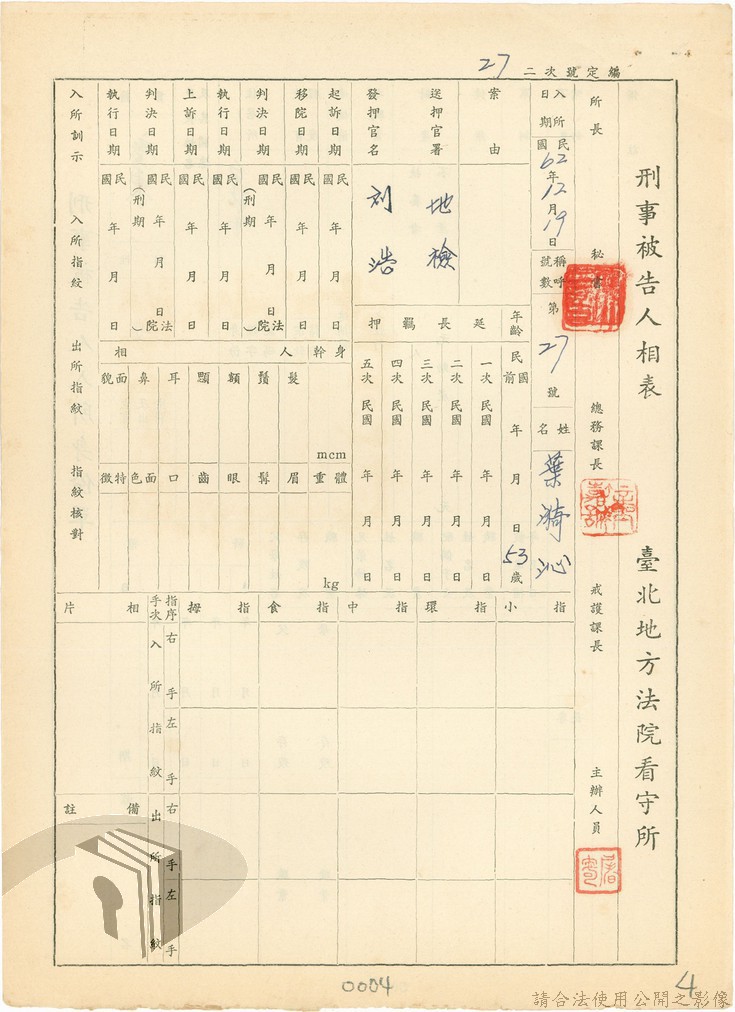 刑事被告人相表
臺北地方法院看守所
編定號次二 27
所長
秘書
總務課長
戒護課長
主辦人員
入所日期
民國62年12月19日
稱呼號數
第27號
姓名
葉漪沁
年齡
民國前 年 月 日 53歲
案由
送押官署
地檢
發押官名
刘浩
延長羈押
一次 民國 年 月 日
二次 民國 年 月 日
三次 民國 年 月 日
四次 民國 年 月 日
五次 民國 年 月 日
起訴日期
民國 年 月 日
移院日期
民國 年 月 日
判決日期
民國 年 月 日
(刑期 法院)
執行日期
民國 年 月 日
上訴日期
民國 年 月 日
判決日期
民國 年 月 日
(刑期 法院)
執行日期
民國 年 月 日
身幹
mcm
體重
kg
人相
髮
鬚
額
顋
耳
鼻
面貌
眉
髯
眼
齒
口
面色
特徵
入所訓示
入所指紋
出所指紋
指紋核對
小指
環指
中指
食指
拇指
指序
手次
相片
右手
左手
入所指紋
右手
左手
出所指紋
備註
0004
4
請合法使用公開之影像